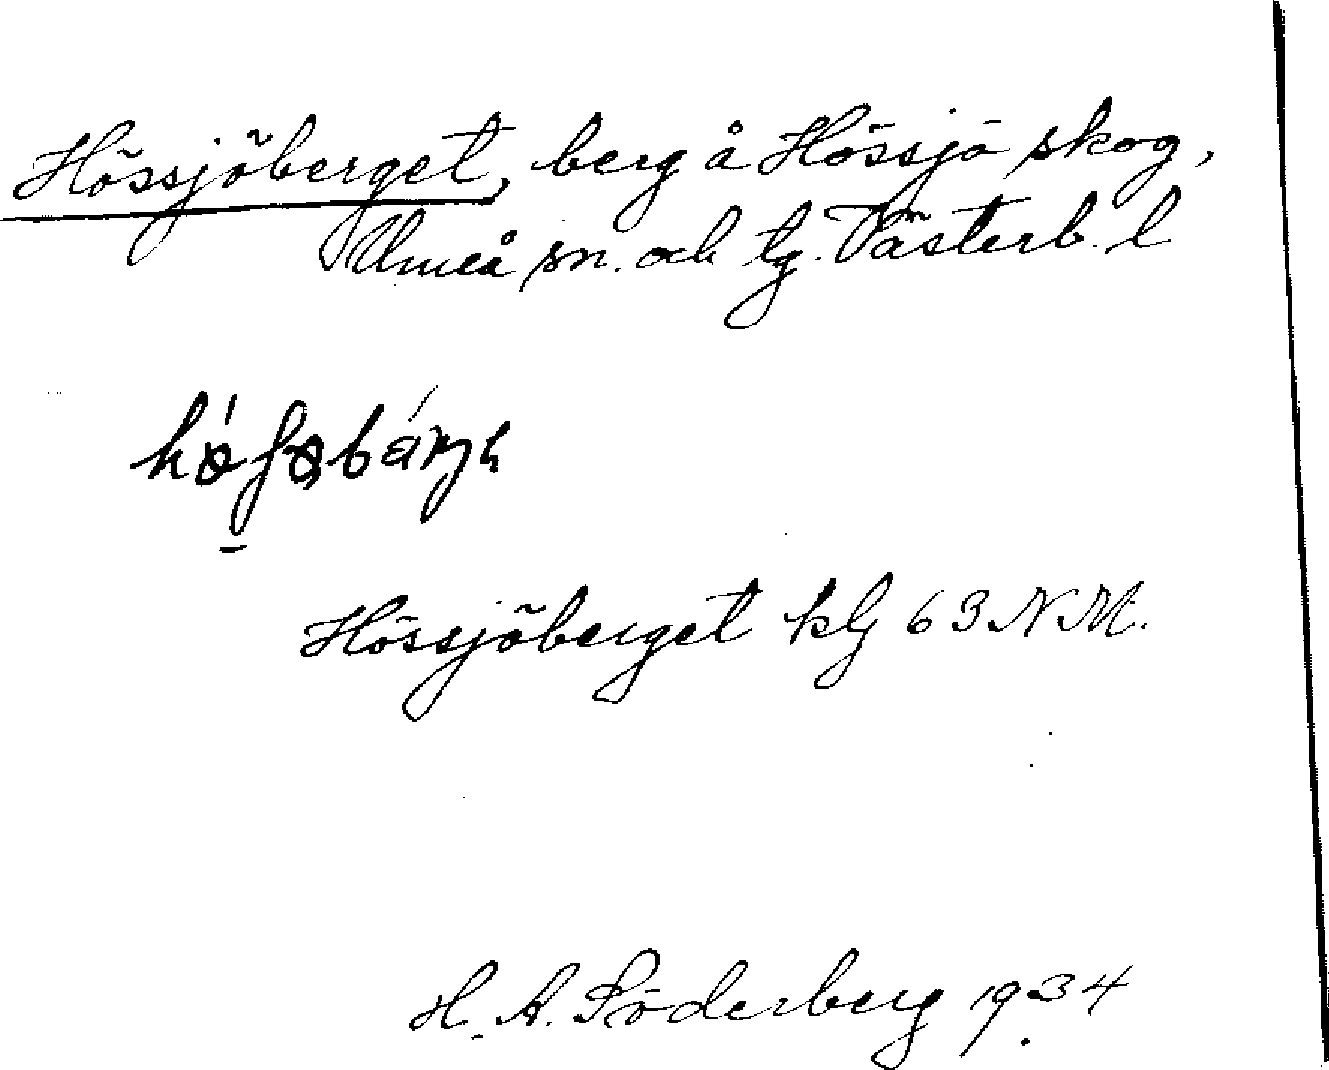 Hössjöberget, berg å Hössjö skog,
Umeå sn. och tg. Västerb. l
Hössjöberget kbl 63 N.M.
H. A. Söderberg 1934